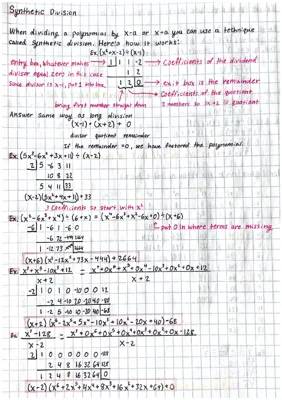 Synthetic Division
When dividing a polynomial by x-a or x+a you can use a technique
called synthetic division. Here's how it works:
Ex. (x²+x-2) ÷ (x-1)
entry box, whatever makes
divisor equal zero in this case
Since divisor is x-1, put 1 into box.
1 | 1 1 -2
1 2
1 2 0
Coefficients of the dividend
exit box is the remainder
Coefficients of the quotient
bring first number straight down
2 numbers so 1x+2 is quotient
Answer same way as long division
(x-1)·(x+2) + 0
divisor quotient remainder
If the remainder =0, we have factored the polynomial.
Ex: (5x³-6x²+3x+11) ÷ (x-2)
2 | 5 -6 3 11
10 8 22
5 4 11 33
(x-2)(5x²+4x+11)+33
Coefficients so start with x²
Ex. (x⁴-6x³+x⁴) ÷ (6+x) = (x⁴-6x³+x²-6x+0) ÷ (x+6)
put 0 in where terms are missing
-6 | 1 -6 1 -6 0
-6 72
1 -12 73
(x+6)(x³-12x²+73x-444)+2664
Ex: x⁷+x⁵-10x³+12 = x⁷+0x⁶+x⁵+0x⁴-10x³+0x²+0x+12
x+2 x+2
-2 | 1 0 1 0 -10 0 0 12
-2 4 -10 20 -20 40 -80
1 -2 5 -10 10 -20 40 -68
(x+2)(x⁶-2x⁵+5x⁴-10x³+10x²-20x+40)-68
Ex: x⁷-128 = x⁷+0x⁶+0x⁵+0x⁴+0x³+0x²+0x-128
x-2 x-2
2 | 1 0 0 0 0 0 0 -128
2 4 8 16 32 64 128
1 2 4 8 16 32 64 0
(x-2)(x⁶+2x⁵+4x⁴+8x³+16x²+32x+64)+0